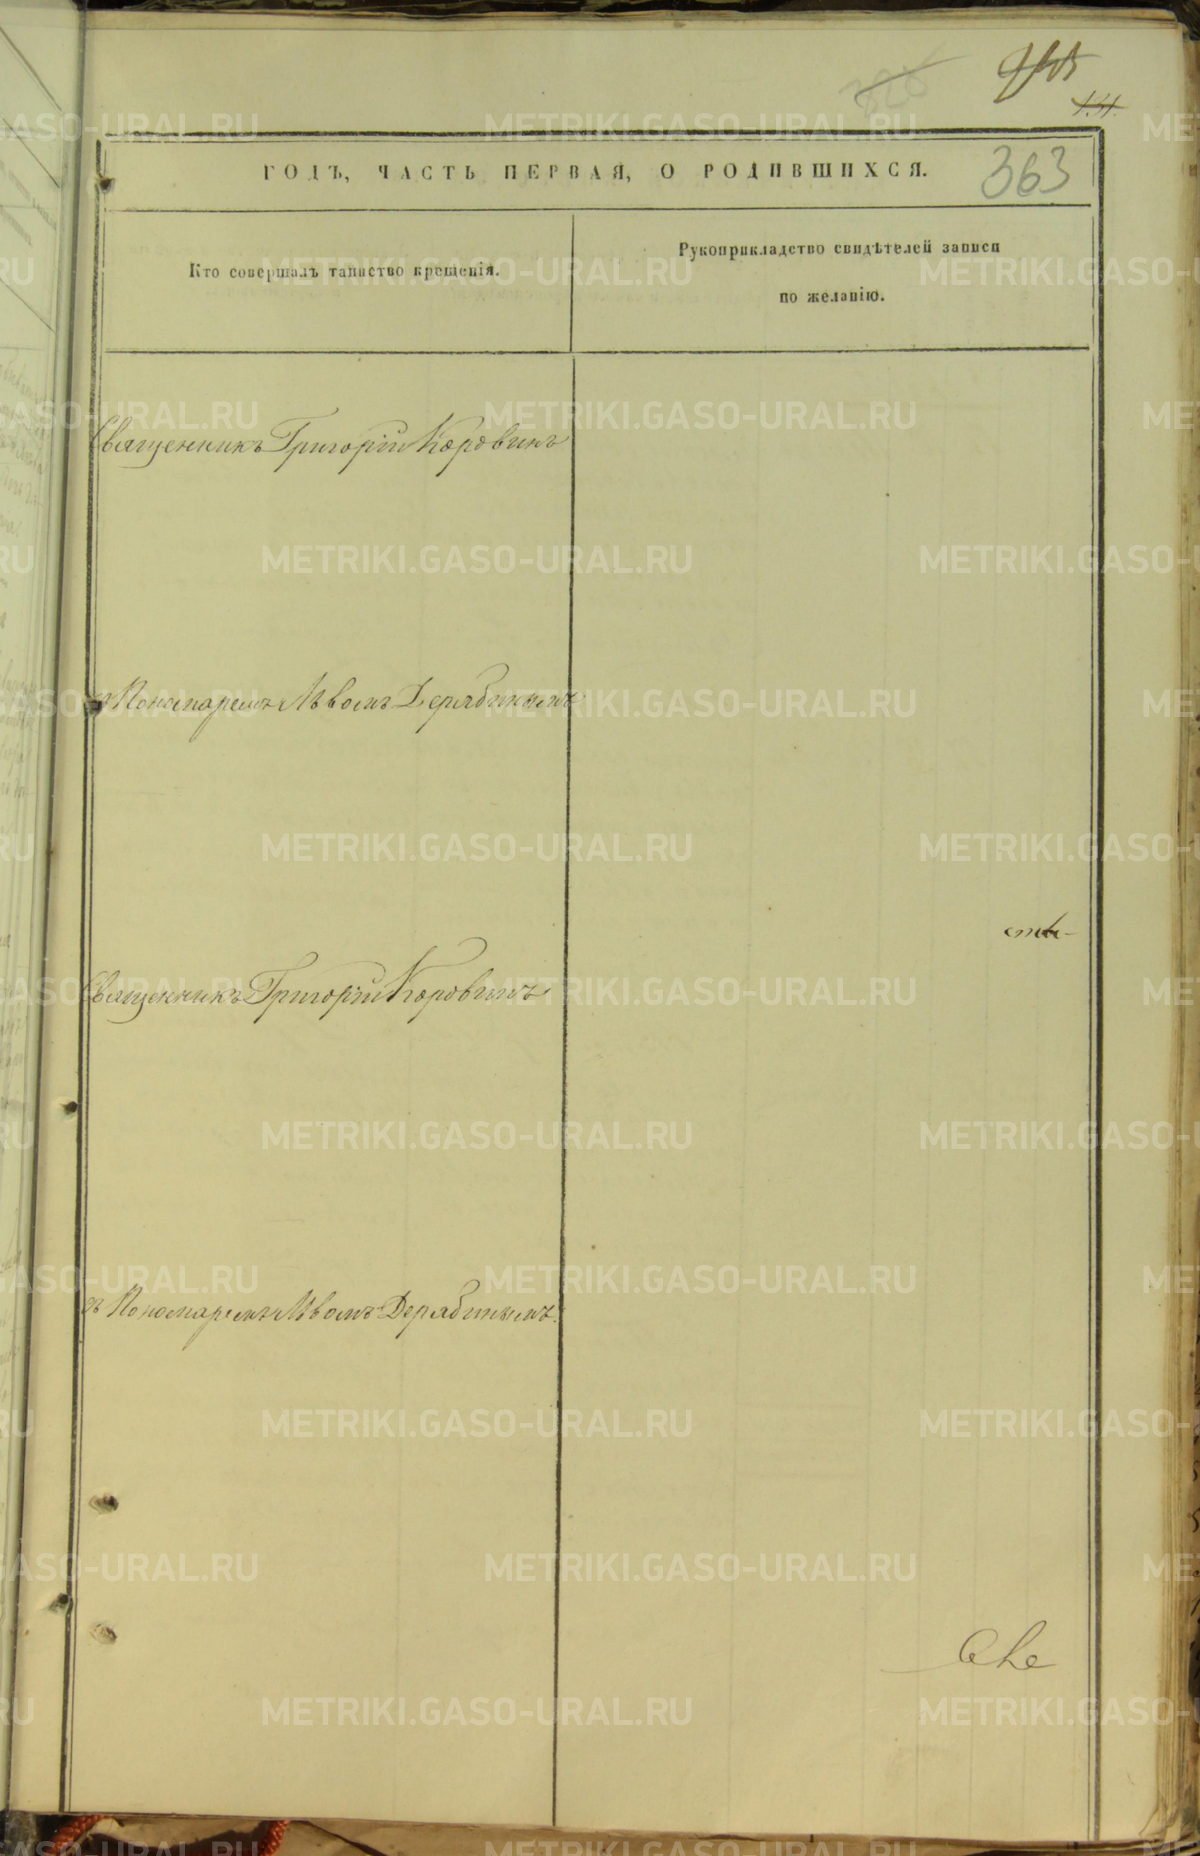 328
131.
363
ГОДЪ, ЧАСТЬ ПЕРВАЯ, О РОДИВШИХСЯ.
Кто совершалъ таинство крещенія.
Рукоприкладство свидѣтелей записи
по желанію.
Священникъ Григорій Коровинъ
съ Пономаремъ Львомъ Дерябинымъ
Священникъ Григорій Коровинъ
съ Пономаремъ Львомъ Дерябинымъ.
METRIKI.GASO-URAL.RU